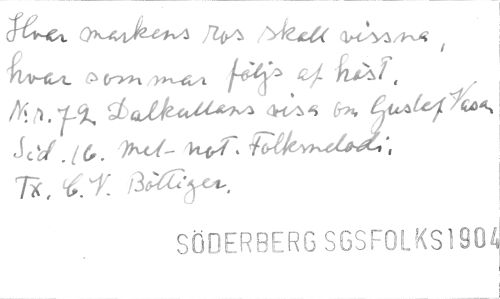 Hvar markens ros skall vissna,
hvar sommar följs af höst.
N:r. 72 Dalkullans visa om Gustef Vasa
Sid. 16. Mel-not. Folkmelodi.
Tx. C. V. Böttiger.
SÖDERBERG SGSFOLKS1904